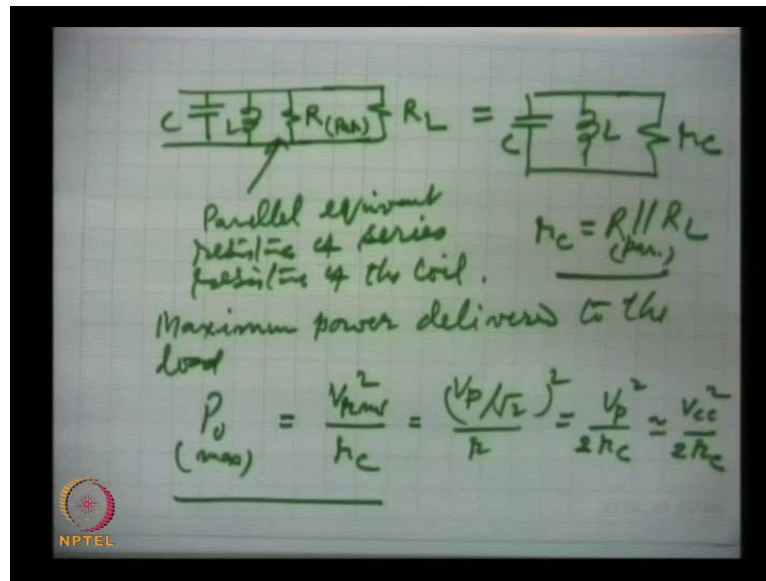 C L R(Par) RL = C L rc
Parallel equivent
resistance of series
resistance of the coil.
rc = R // RL
(par.)
Maximum power delivered to the
load
Po = V²rms / rc = (Vp/√2)² / r = Vp² / 2rc ≃ Vcc² / 2rc
(max)
NPTEL